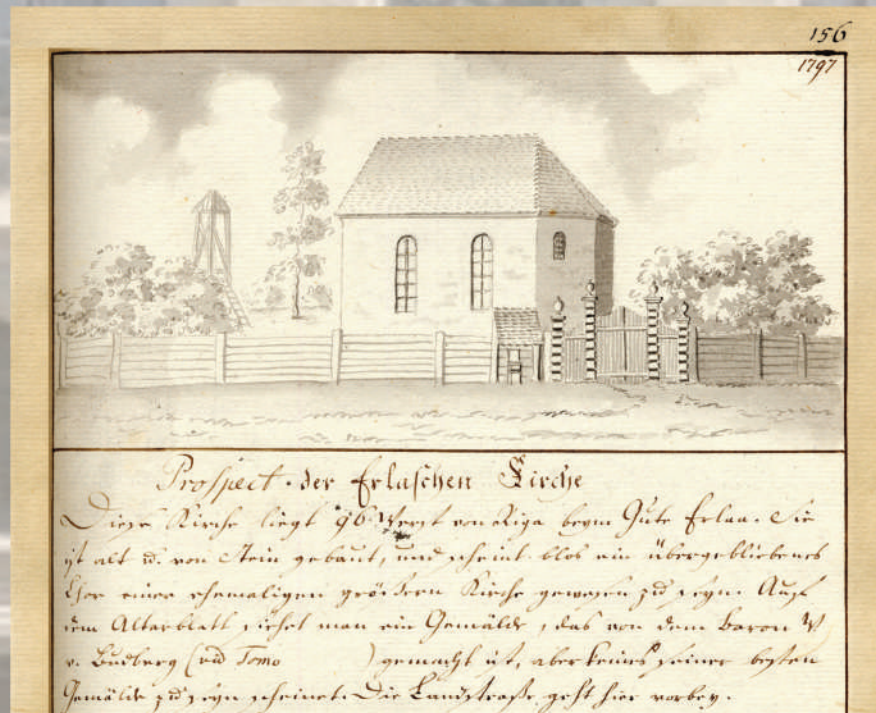 156
1797
Prospect der Erlaschen Kirche
Diese Kirche liegt 96 Werst von Riga beym Gute Erlaa. Sie
ist alt u. von Stein gebaut, und scheint blos ein übergebliebenes
Chor einer ehemaligen größern Kirche gewesen zu seyn. Auf
dem Altarblatt siehet man ein Gemälde, das von dem Baron W
v. Budberg (vid Tomo ) gemacht ist, aber keins seiner besten
Gemälde zu seyn scheinet. Die Landstraße geht hier vorbey.